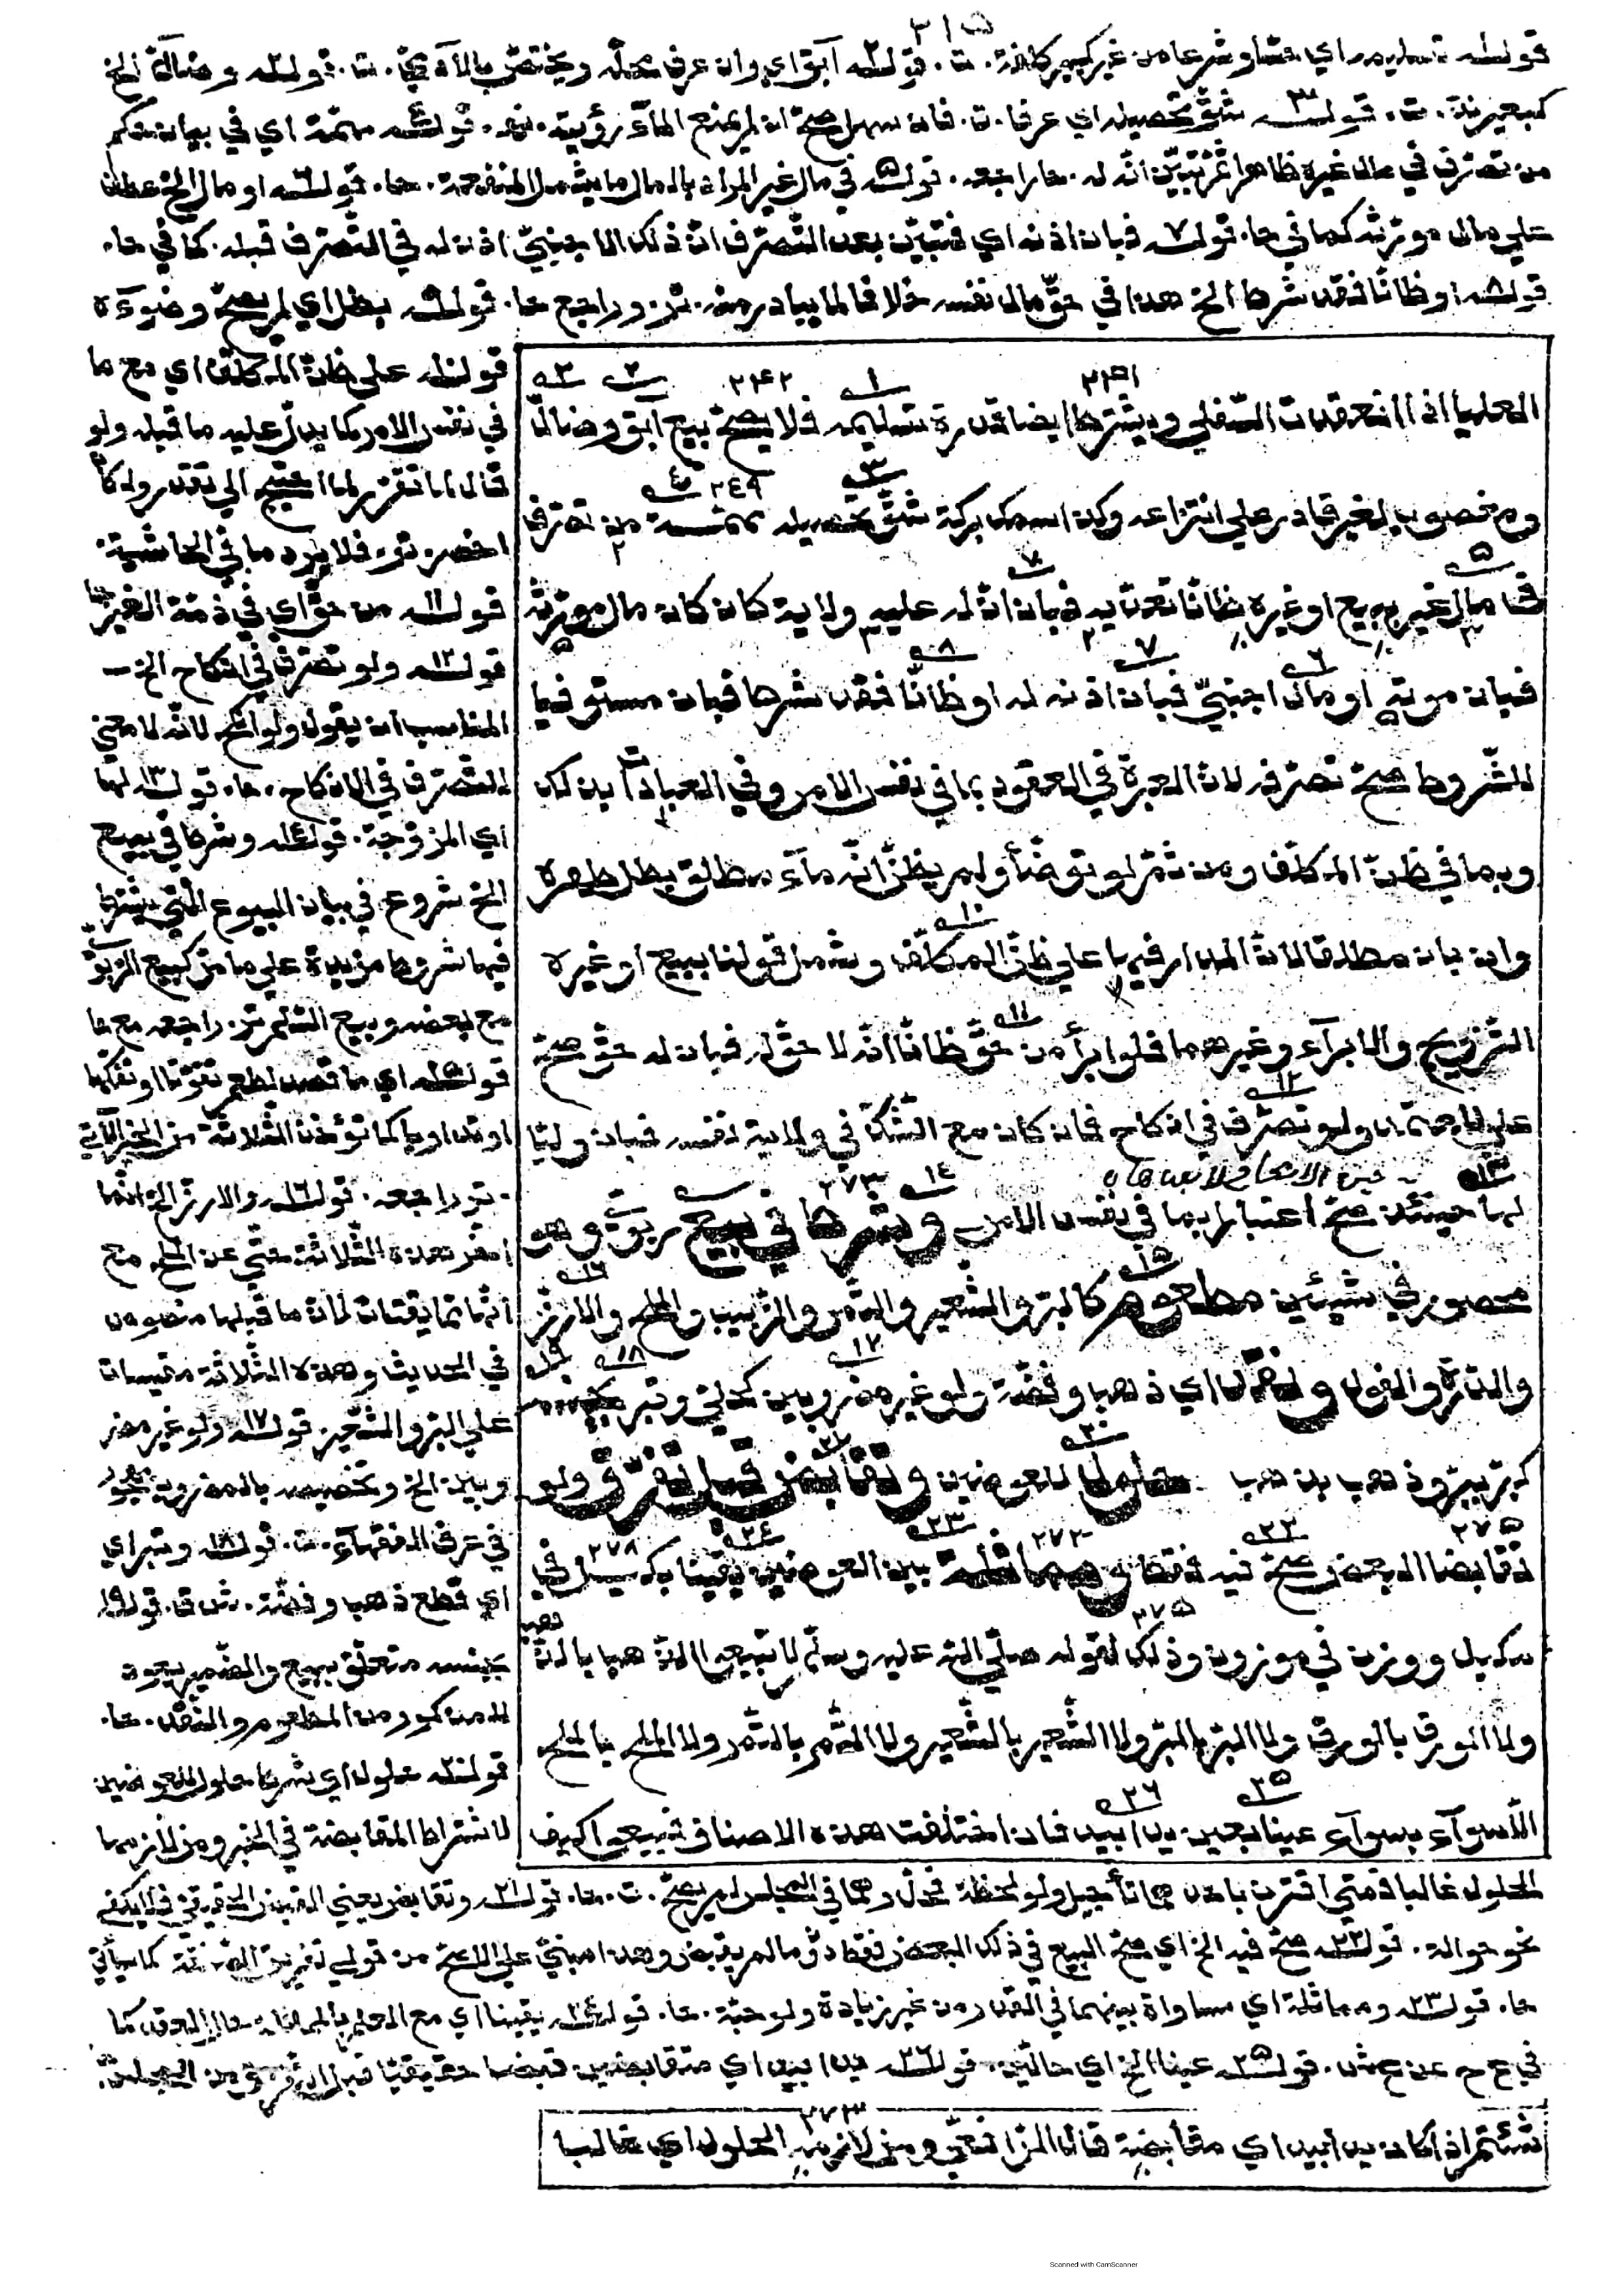 ٣١٥
قولـ١ـه تسليمه اي حسّا وشرعا من غير كبير كلفة. ت. قولـ٢ـه آبق اي وان عرف محلّه ويختصّ بالآدميّ. ت. قولـه وضالّ الخ
كبعير ندّ. ت. قولـ٣ـه شقّ تحصيله اي عرفا. ت. فان سهل صحّ ان لم يمنع المآء رؤيته. نه. قولـ٤ـه مهمّة اي في بيان حكم
من تصرّف في مال غيره ظاهرا ثمّ تبيّن انّه له. حا راجعه. قولـ٥ـه في مال غير المراد بالمال ما يشمل المنفعة. حا. قولـ٦ـه او مال الخ عطف
علي مال مورّثه كما في حا. قولـ٧ـه فبان اذنه اي فتبيّن بعد التّصرّف انّ ذلك الاجنبيّ اذن له في التّصرّف قبله. كما في حا.
قولـ٨ـه او ظانّا فقد شرط الخ هذا في حقّ مال نفسه خلافا لما يبادر منه. تر. وراجع حا. قولـ٩ـه بطل اي لم يصحّ وضوءه
العليا اذا انعقدت السّفلي ويشترط ايضا قدرة تسليمه فلا يصحّ بيع آبق وضالّ
ومغصوب لغير قادر علي انتزاعه وكذا سمك بركة شقّ تحصيله مهمّـة من تصرّف
في مال غيره ببيع او غيره ظانّا تعدّيه فبان انّ له عليه ولاية كان كان مال مورّثه
فبان موته او مال اجنبيّ فبان اذنه له او ظانّا فقد شرط فبان مستوفيا
للشّروط صحّ تصرّفه لانّ العبرة في العقود بما في نفس الامر وفي العبادات بذلك
وبما في ظنّ المكلّف ومن ثمّ لو توضّأ ولم يظنّ انّه مآء مطلق بطل طهره
وان بان مطلقا لانّ المدار فيها علي ظنّ المكلّف وشمل قولنا ببيع او غيره
التّزويج والابرآء وغيرهما فلو ابرأ من حقّ ظانّا انّه لا حقّ له فبان له حقّ صحّ
علي المعتمد ولو تصرّف في انكاح فان كان مع الشّكّ في ولاية نفسه فبان وليّا
لها حينئذ صحّ اعتبارا بما في نفس الامر وشرط في بيع ربويّ وهو
محصور في شيئين مطعوم كالبرّ والشّعير والتّمر والزّبيب والملح والارزّ
والذّرة والفول ونقد اي ذهب وفضّة ولو غير مضروبين كحليّ وتبر بجنسه
كبرّ ببرّ وذهب بذهب حلول للعوضين وتقابض قبل تفرّق ولو
تقابضا البعض صحّ فيه فقط ومماثلة بين العوضين يقينا بكيل في
مكيل ووزن في موزون وذلك لقوله صلّي اللّه عليه وسلّم لا تبيعوا الذّهب بالذّهب
ولا الورق بالورق ولا البرّ بالبرّ ولا الشّعير بالشّعير ولا التّمر بالتّمر ولا الملح بالملح
الّا سوآء بسوآء عينا بعين يدا بيد فاذا اختلفت هذه الاصناف فبيعوا كيف
شئتم اذا كان يدا بيد اي مقابضة قال الرّافعيّ ومن لازمه الحلول اي غالبا
قولـ١٠ـه علي ظنّ المكلّف اي مع ما
في نفس الامر كما يدلّ عليه ما قبله ولو
قال لما تقرّر لما احتيج الي تقديره ولكان
اخصر. تو. فلا يرد ما في الحاشية.
قولـ١١ـه من حقّ اي في ذمّة الغير. حا
قولـ١٢ـه ولو تصرّف في انكاح الخ ـ
المناسب ان يقول ولو انكح لانّه لا معني
للتّصرّف في الانكاح. حا. قولـ١٣ـه لها
اي المزوّجة. قولـ١٤ـه وشرط في بيع
الخ شروع في بيان البيوع الّتي يشترط
فيها شروط مزيدة علي ما مرّ كبيع الرّبويّ
مع بعضه وبيع السّلم. تر. راجعه مع حا
قولـ١٥ـه اي ما قصد لطعم تقوّتا او تفكّها
او تداويا كما تؤخذ الثّلاثة من الخبر الآتي
. تو راجعه. قولـ١٦ـه والارزّ الخ انّما
اخّر هذه الثّلاثة حتّي عن الملح مع
انّها ممّا يقتات لانّ ما قبلها منصوص
في الحديث وهذه الثّلاثة مقيسات
علي البرّ والشّعير. قولـ١٧ـه ولو غير مضر
وبين الخ وتخصيصه بالمضروب مهجور
في عرف الفقهآء. ت. قولـ١٨ـه وتبر اي
اي قطع ذهب وفضّة. ش ق. قولـ١٩ـه
بجنسه متعلّق ببيع والضّمير يعود
للمذكور من المطعوم والنّقد. حا.
قولـ٢٠ـه حلول اي شرط حلول للعوضين
لاشتراط المقابضة في الخبر ومن لازمها
الحلول غالبا فمتي اقترن باحدهما تأجيل ولو لحظة فحلّ وهما في المجلس لم يصحّ. ت. حا. قولـ٢١ـه وتقابض يعني القبض الحقيقيّ فلا يكفي
نحو حوالة. قولـ٢٢ـه صحّ فيه الخ اي صحّ البيع في ذلك البعض فقط دون ما لم يقبض وهذا مبنيّ علي الاصحّ من قولي تفريق الصّفقة كما سيأتي
حا. قولـ٢٣ـه ومماثلة اي مساواة بينهما في القدر من غير زيادة ولو حبّة. حا. قولـ٢٤ـه يقينا اي مع العلم بالمماثلة حال العقد كما
في ع ح عن ع ش. قولـ٢٥ـه عينا الخ اي حالّين. قولـ٢٦ـه يدا بيد اي متقابضين قبضا حقيقيّا قبل التّفرّق من المجلس.
Scanned with CamScanner